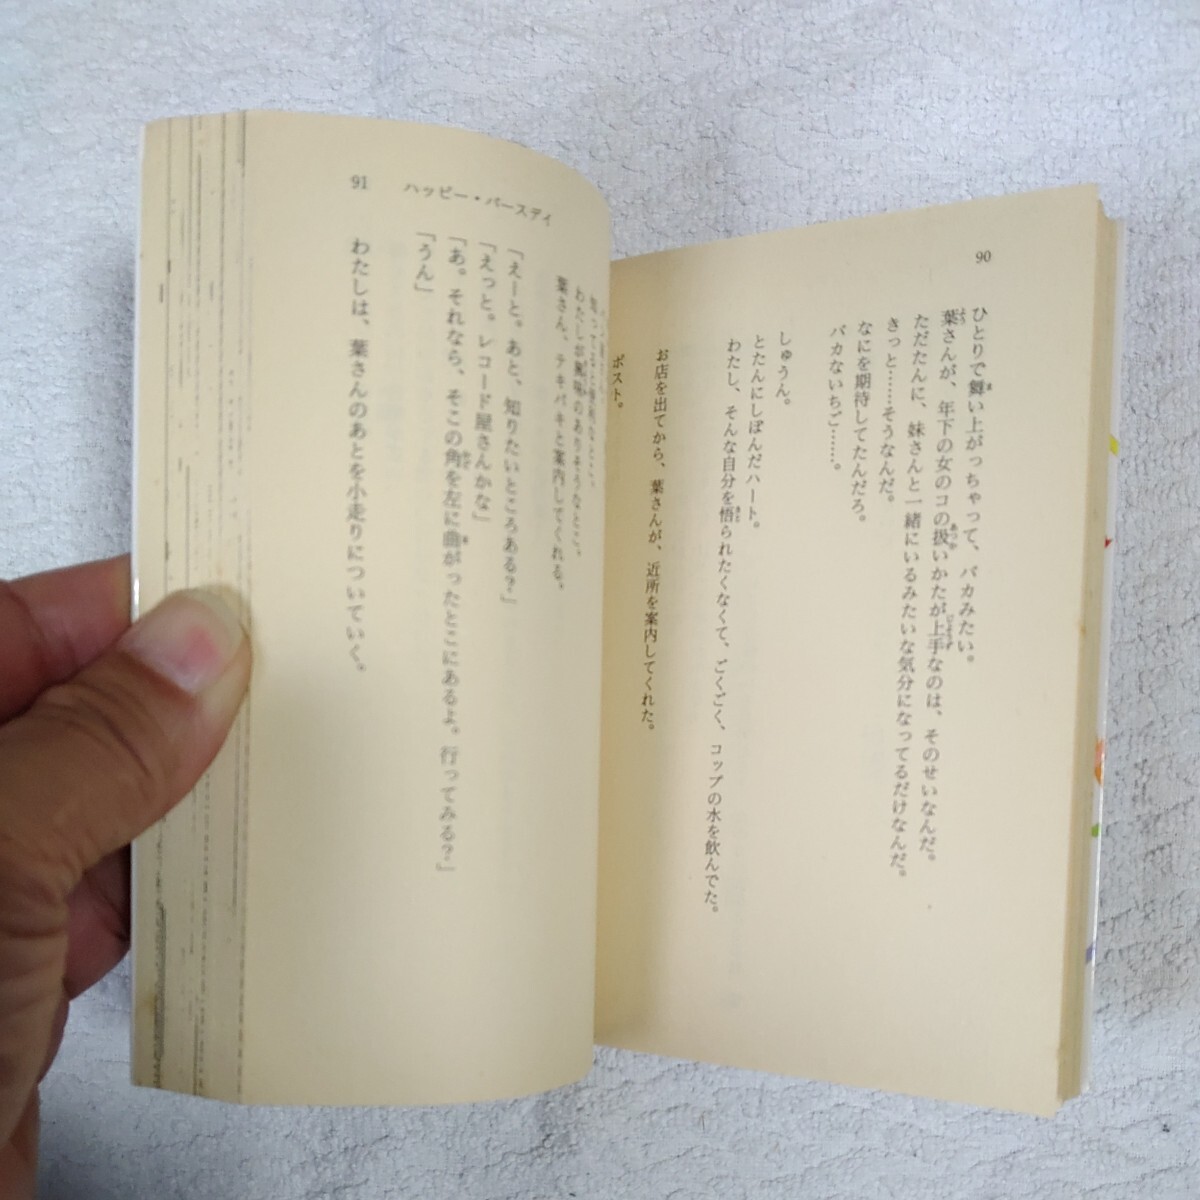 90
ひとりで舞い上がっちゃって、バカみたい。
葉さんが、年下の女のコの扱いかたが上手なのは、そのせいなんだ。
ただたんに、妹さんと一緒にいるみたいな気分になってるだけなんだ。
きっと……そうなんだ。
なにを期待してたんだろ。
バカないちご……。
しゅうん。
とたんにしぼんだハート。
わたし、そんな自分を悟られたくなくて、ごくごく、コップの水を飲んでた。
お店を出てから、葉さんが、近所を案内してくれた。
ポスト。
91 ハッピー・バースデイ
わたしが興味のありそうなとこ。
葉さん、テキパキと案内してくれる。
「えーと。あと、知りたいところある?」
「えっと。レコード屋さんかな」
「あ。それなら、そこの角を左に曲がったとこにあるよ。行ってみる?」
「うん」
わたしは、葉さんのあとを小走りについていく。